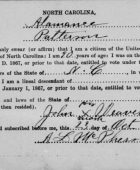 NORTH CAROLINA,
Alamance
Patterson
nly swear (or affirm) that I am a citizen of the United
of North Carolina; I am 65 years of age. I was on
D. 1867, or prior to that date, entitled to vote under
ws of the State of N. C. in which I
m a lineal descendant of
January 1, 1867, or prior to that date, entitled to vote
and laws of the State of
then resided).
John
mark
subscribed before me, this day of Oct